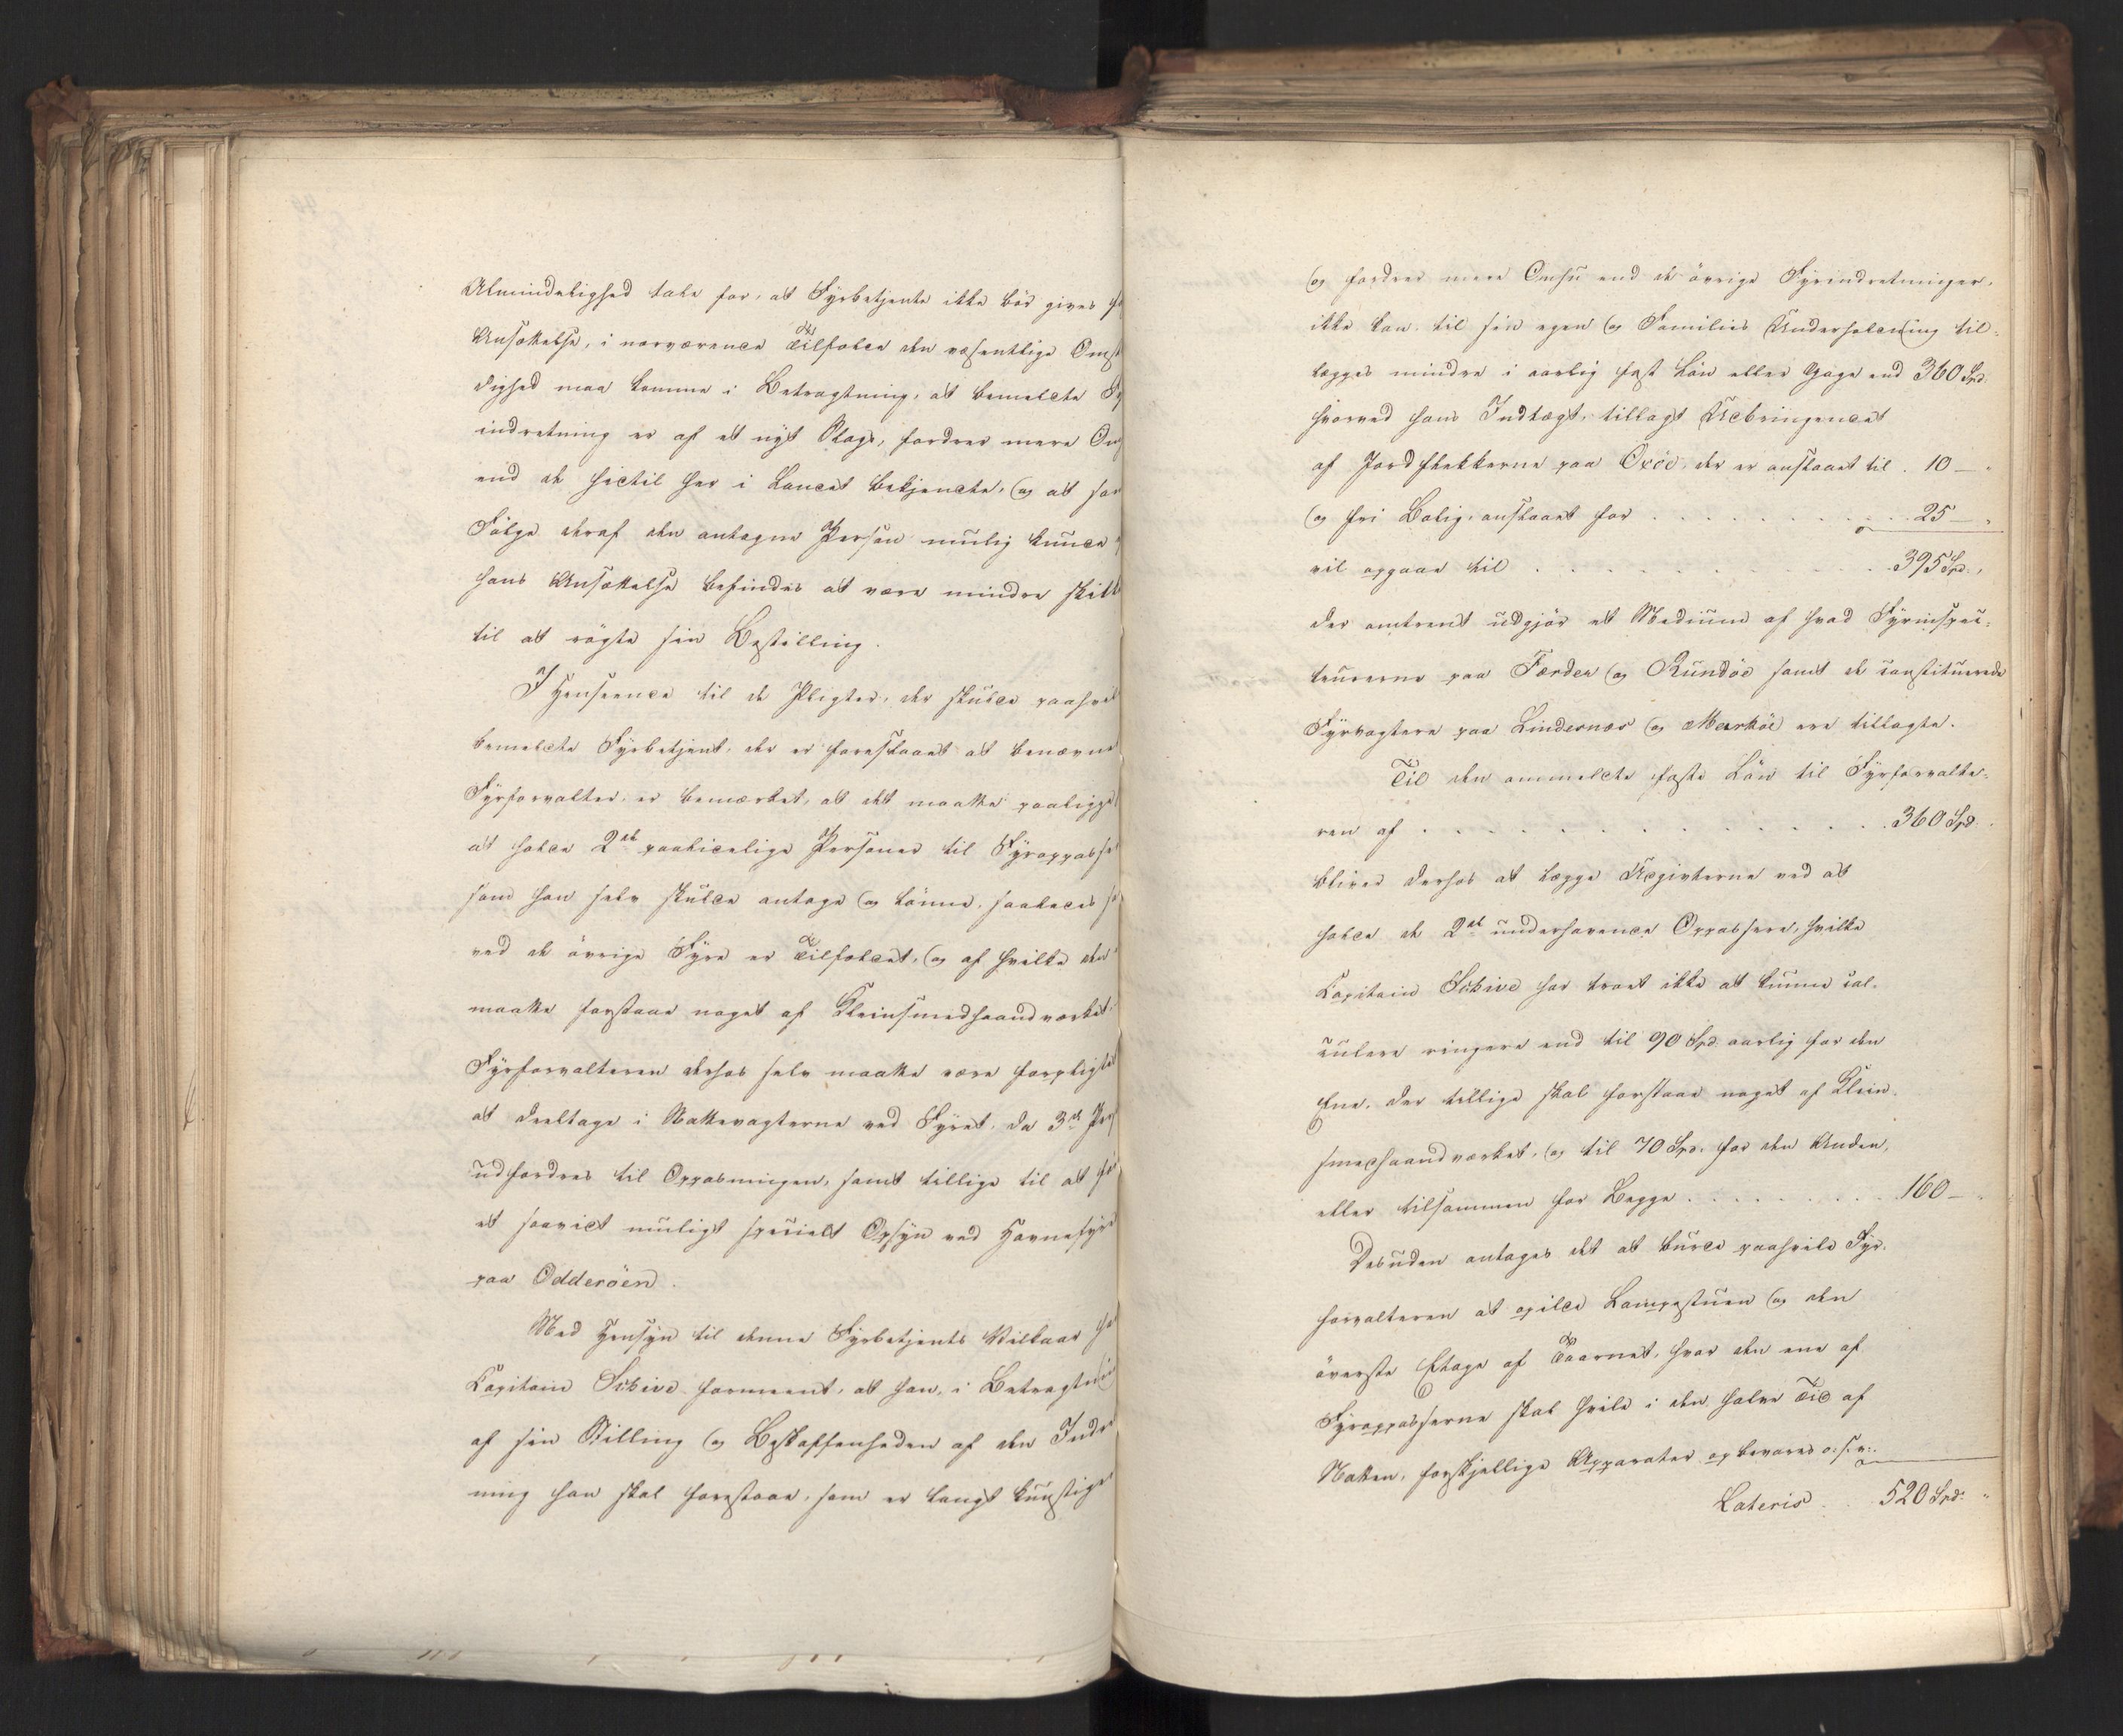 Almindelighed tale for, at Fyrbetjente ikke bör gives
Ansættelse, i nærværende Tilfælde den væsentlige Omst
dighed maa komme i Betragtning, at bemeldte Fy
indretning er af et nyt Slags, fordrer mere Om
end de hidtil her i Landet bekjendte, og at som
Følge deraf den antagne Person mulig kunde
hans Ansættelse befindes at være mindre skikk
til at rögte sin Bestilling.
I Henseende til de Pligter, der skulde paahvil
bemeldte Fyrbetjent, der er foreslaaet at benævne
Fyrforvalter, er bemærket, at det maatte paaligge
at holde 2de paalidelige Personer til Fyroppasse
som han selv skulde antage og lönne, saaledes so
ved de övrige Fyre er Tilfældet, og af hvilke den
maatte forstaae noget af Kleinsmedhaandværket;
Fyrforvalteren derhos selv maatte være forpligtet
at deeltage i Nattevagterne ved Fyret, da 3de Per
udfordres til Opparningen, samt tillige til at
et saavidt muligt specielt Opsyn ved Havnefyre
paa Odderöen.
Med Hensyn til denne Fyrbetjents Vilkaar ha
Capitain Schive formeent, at han, i Betragtni
af sin Stilling og Beskaffenheden af den Indr
ning han skal forestaae, som er langt kunstige
og fordrer mere Omhu end de övrige Fyrindretninger,
ikke kan til sin egen og Families Underholdning til-
lægges mindre i aarlig fast Lön eller Gage end 360 Spd.
hvorved hans Indtægt, tillagt Udbringendet
af Jordflekkerne paa Oxöe, der er anslaaet til . 10 — "
og fri Bolig, anslaaet for . . . . . . . 25 — "
vil opgaae til . . . . . . . 395 Spd. "
der omtrent udgjör et Medium af hvad Fyrinspec-
teurerne paa Færder og Rundöe samt de constituerede
Fyrvogtere paa Lindernæs og Marköe ere tillagte.
Til den ommeldte faste Lön til Fyrforvalte-
ren af . . . . . . . 360 Spd.
bliver derhos at lægge Udgivterne ved at
holde de 2de underhavende Oppassere, hvilke
Capitain Schive har troet ikke at kunne cal-
culere ringere end til 90 Spd. aarlig for den
Ene, der tillige skal forstaae noget af Klein-
smedhaandværket, og til 70 Spd. for den Anden,
eller tilsammen for Begge . . . . . . . 160 — "
Desuden antages det at burde paahvile Fyr-
forvalteren at opilde Lampestuen og den
överste Etage af Taarnet, hvor den ene af
Fyroppasserne skal hvile i den halve Tid af
Natten, forskjellige Apparater opbevares o: s: v:.
Lateris . . 520 Spd. "